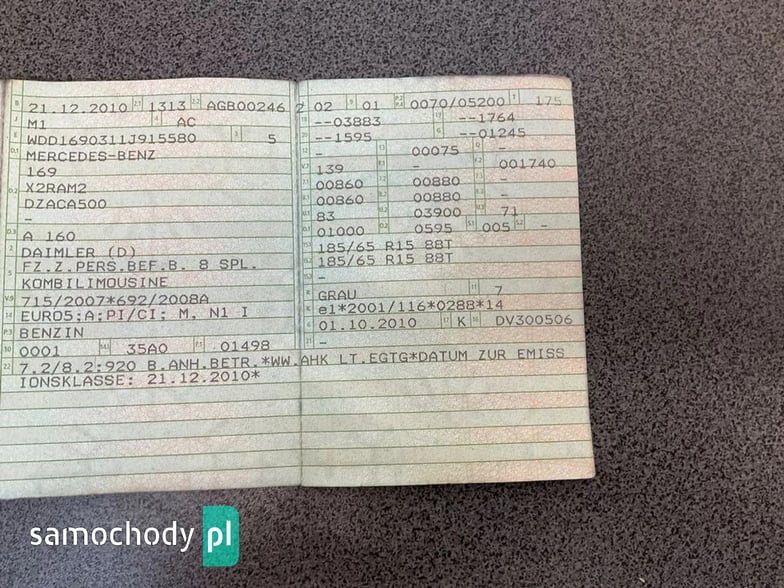 B 21.12.2010 2.1 1313 2.2 AGB00246 2
J M1 4 AC
E WDD1690311J915580 3 5
D.1 MERCEDES-BENZ
169
D.2 X2RAM2
DZACA500
-
D.3 A 160
2 DAIMLER (D)
5 FZ.Z.PERS.BEF.B. 8 SPL.
KOMBILIMOUSINE
V.9 715/2007*692/2008A
14 EURO5;A;PI/CI; M, N1 I
P.3 BENZIN
10 0001 14.1 35A0 P.1 01498
22 7.2/8.2:920 B.ANH.BETR.*WW.AHK LT.EGTG*DATUM ZUR EMISS
IONSKLASSE: 21.12.2010*
02 9 01 P.2 P.4 0070/05200 T 175
18 --03883 19 --1764
20 --1595 G --01245
12 - 13 00075 Q -
V.7 139 F.1 - F.2 001740
7.1 00860 7.2 00880 7.3 -
8.1 00860 8.2 00880 8.3 -
U.1 83 U.2 03900 U.3 71
O.1 01000 O.2 0595 S.1 005 S.2 -
15.1 185/65 R15 88T
15.2 185/65 R15 88T
15.3 -
R GRAU 11 7
K e1*2001/116*0288*14
6 01.10.2010 17 K 16 DV300506
21 -
samochody pl